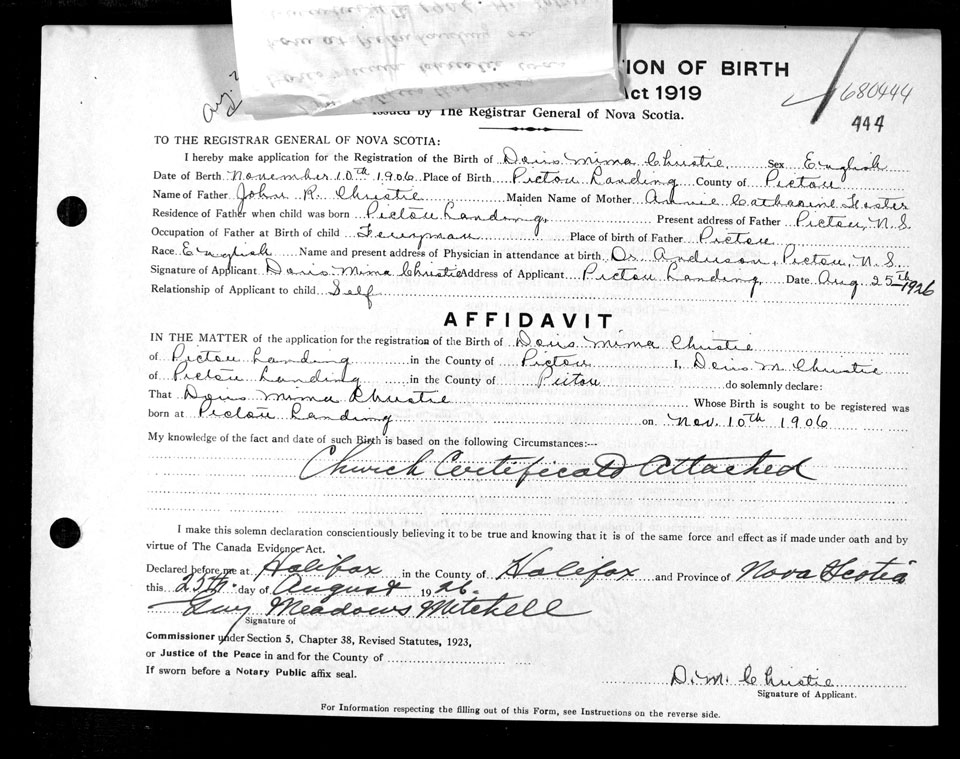 TION OF BIRTH
Act 1919
Issued by The Registrar General of Nova Scotia.
Aug.
680444
444
TO THE REGISTRAR GENERAL OF NOVA SCOTIA:
I hereby make application for the Registration of the Birth of Doris Mima Christie Sex English
Date of Birth November 10th 1906 Place of Birth Pictou Landing County of Pictou
Name of Father John R. Christie Maiden Name of Mother Annie Catharine Foster
Residence of Father when child was born Pictou Landing, Present address of Father Pictou, N.S.
Occupation of Father at Birth of child Ferryman Place of birth of Father Pictou
Race English Name and present address of Physician in attendance at birth Dr. Anderson, Pictou, N.S.
Signature of Applicant Doris Mima Christie Address of Applicant Pictou Landing, Date Aug 25th 1926
Relationship of Applicant to child Self
AFFIDAVIT
IN THE MATTER of the application for the registration of the Birth of Doris Mima Christie
of Pictou Landing in the County of Pictou I, Doris M. Christie
of Pictou Landing in the County of Pictou do solemnly declare:
That Doris Mima Christie Whose Birth is sought to be registered was
born at Pictou Landing on Nov. 10th 1906
My knowledge of the fact and date of such Birth is based on the following Circumstances:—
Church Certificate Attached
I make this solemn declaration conscientiously believing it to be true and knowing that it is of the same force and effect as if made under oath and by
virtue of The Canada Evidence Act.
Declared before me at Halifax in the County of Halifax and Province of Nova Scotia
this 25th. day of August 1926.
Guy Meadows Mitchell
Signature of
Commissioner under Section 5, Chapter 38, Revised Statutes, 1923,
or Justice of the Peace in and for the County of
If sworn before a Notary Public affix seal.
D. M. Christie
Signature of Applicant.
For Information respecting the filling out of this Form, see Instructions on the reverse side.